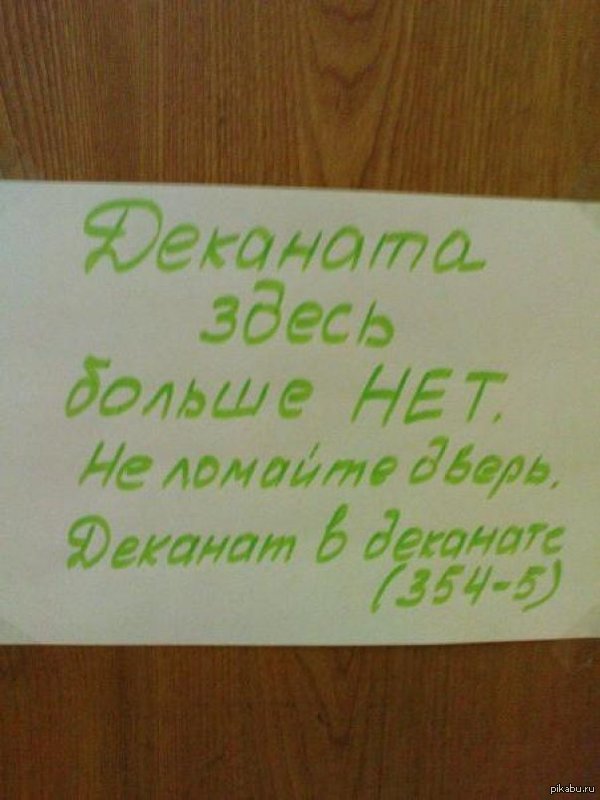 Деканата
здесь
больше НЕТ.
Не ломайте дверь.
Деканат в деканате
(354-5)
pikabu.ru